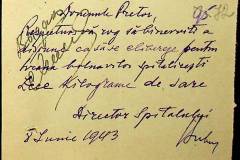 Domnule Pretor,
Respectuos vă rog să binevoiți a
dispune ca să se elibereze pentru
hrana bolnavilor spitalicești
Zece Kilograme de sare
Director Spitalului
8 Iunie 1943